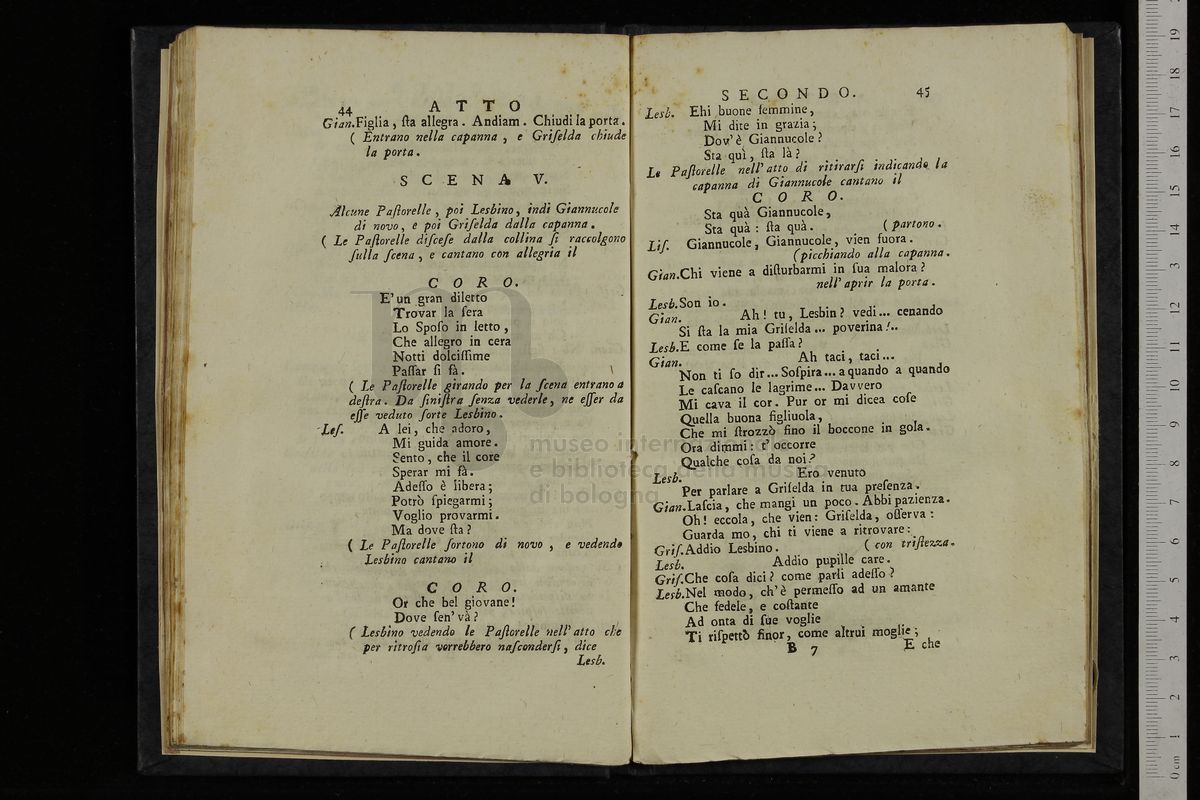 44
A T T O
Gian. Figlia, ſta allegra. Andiam. Chiudi la porta.
( Entrano nella capanna, e Griſelda chiude
la porta.
S C E N A V.
Alcune Paſtorelle, poi Lesbino, indi Giannucole
di novo, e poi Griſelda dalla capanna.
( Le Paſtorelle diſceſe dalla collina ſi raccolgono
ſulla ſcena, e cantano con allegria il
C O R O.
E' un gran diletto
Trovar la ſera
Lo Spoſo in letto,
Che allegro in cera
Notti dolciſſime
Paſſar ſi fà.
( Le Paſtorelle girando per la ſcena entrano a
deſtra. Da ſiniſtra ſenza vederle, ne eſſer da
eſſe veduto ſorte Lesbino.
Leſ. A lei, che adoro,
Mi guida amore.
Sento, che il core
Sperar mi fà.
Adeſſo è libera;
Potrò ſpiegarmi;
Voglio provarmi.
Ma dove ſta?
( Le Paſtorelle ſortono di novo, e vedendo
Lesbino cantano il
C O R O.
Or che bel giovane!
Dove ſen' và?
( Lesbino vedendo le Paſtorelle nell' atto che
per ritroſia vorrebbero naſconderſi, dice
Lesb.
S E C O N D O. 45
Lesb. Ehi buone femmine,
Mi dite in grazia;
Dov' è Giannucole?
Sta quì, ſta là?
Le Paſtorelle nell' atto di ritirarſi indicando la
capanna di Giannucole cantano il
C O R O.
Sta quà Giannucole,
Sta quà: ſta quà. ( partono.
Liſ. Giannucole, Giannucole, vien fuora.
(picchiando alla capanna.
Gian. Chi viene a diſturbarmi in ſua malora?
nell' aprir la porta.
Lesb. Son io.
Gian. Ah! tu, Lesbin? vedi... cenando
Si ſta la mia Griſelda... poverina!..
Lesb. E come ſe la paſſa?
Gian. Ah taci, taci...
Non ti ſo dir... Soſpira... a quando a quando
Le caſcano le lagrime... Davvero
Mi cava il cor. Pur or mi dicea coſe
Quella buona figliuola,
Che mi ſtrozzò fino il boccone in gola.
Ora dimmi: t' occorre
Qualche coſa da noi?
Lesb. Ero venuto
Per parlare a Griſelda in tua preſenza.
Gian. Laſcia, che mangi un poco. Abbi pazienza.
Oh! eccola, che vien: Griſelda, oſſerva:
Guarda mo, chi ti viene a ritrovare:
Griſ. Addio Lesbino. ( con triſtezza.
Lesb. Addio pupille care.
Griſ. Che coſa dici? come parli adeſſo?
Lesb. Nel modo, ch' è permeſſo ad un amante
Che fedele, e coſtante
Ad onta di ſue voglie
Ti riſpettò finor, come altrui moglie;
B 7 E che
museo internazionale
e biblioteca della musica
di bologna
0 cm 1 2 3 4 5 6 7 8 9 10 11 12 13 14 15 16 17 18 19